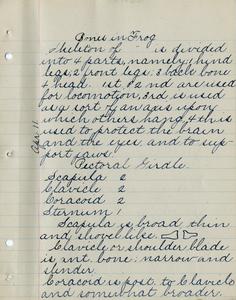 Bones in Frog
Skeleton of " is divided
into 4 parts, namely, 1 hind
legs, 2 front legs, 3 back bone
4 head. 1st & 2nd are used
for locomotion, 3rd is used
as a sort of an axis upon
which others hang, 4th is
used to protect the brain
and the eyes, and to sup-
port jaws.
Apr. 11
Pectoral Girdle.
Scapula 2
Clavicle 2
Coracoid 2
Sternum 1
Scapula is broad thin
and shovel like.
Clavicle or shoulder blade
is ant. bone; narrow and
slender
Coracoid is post. to Clavicle
and somewhat broader.